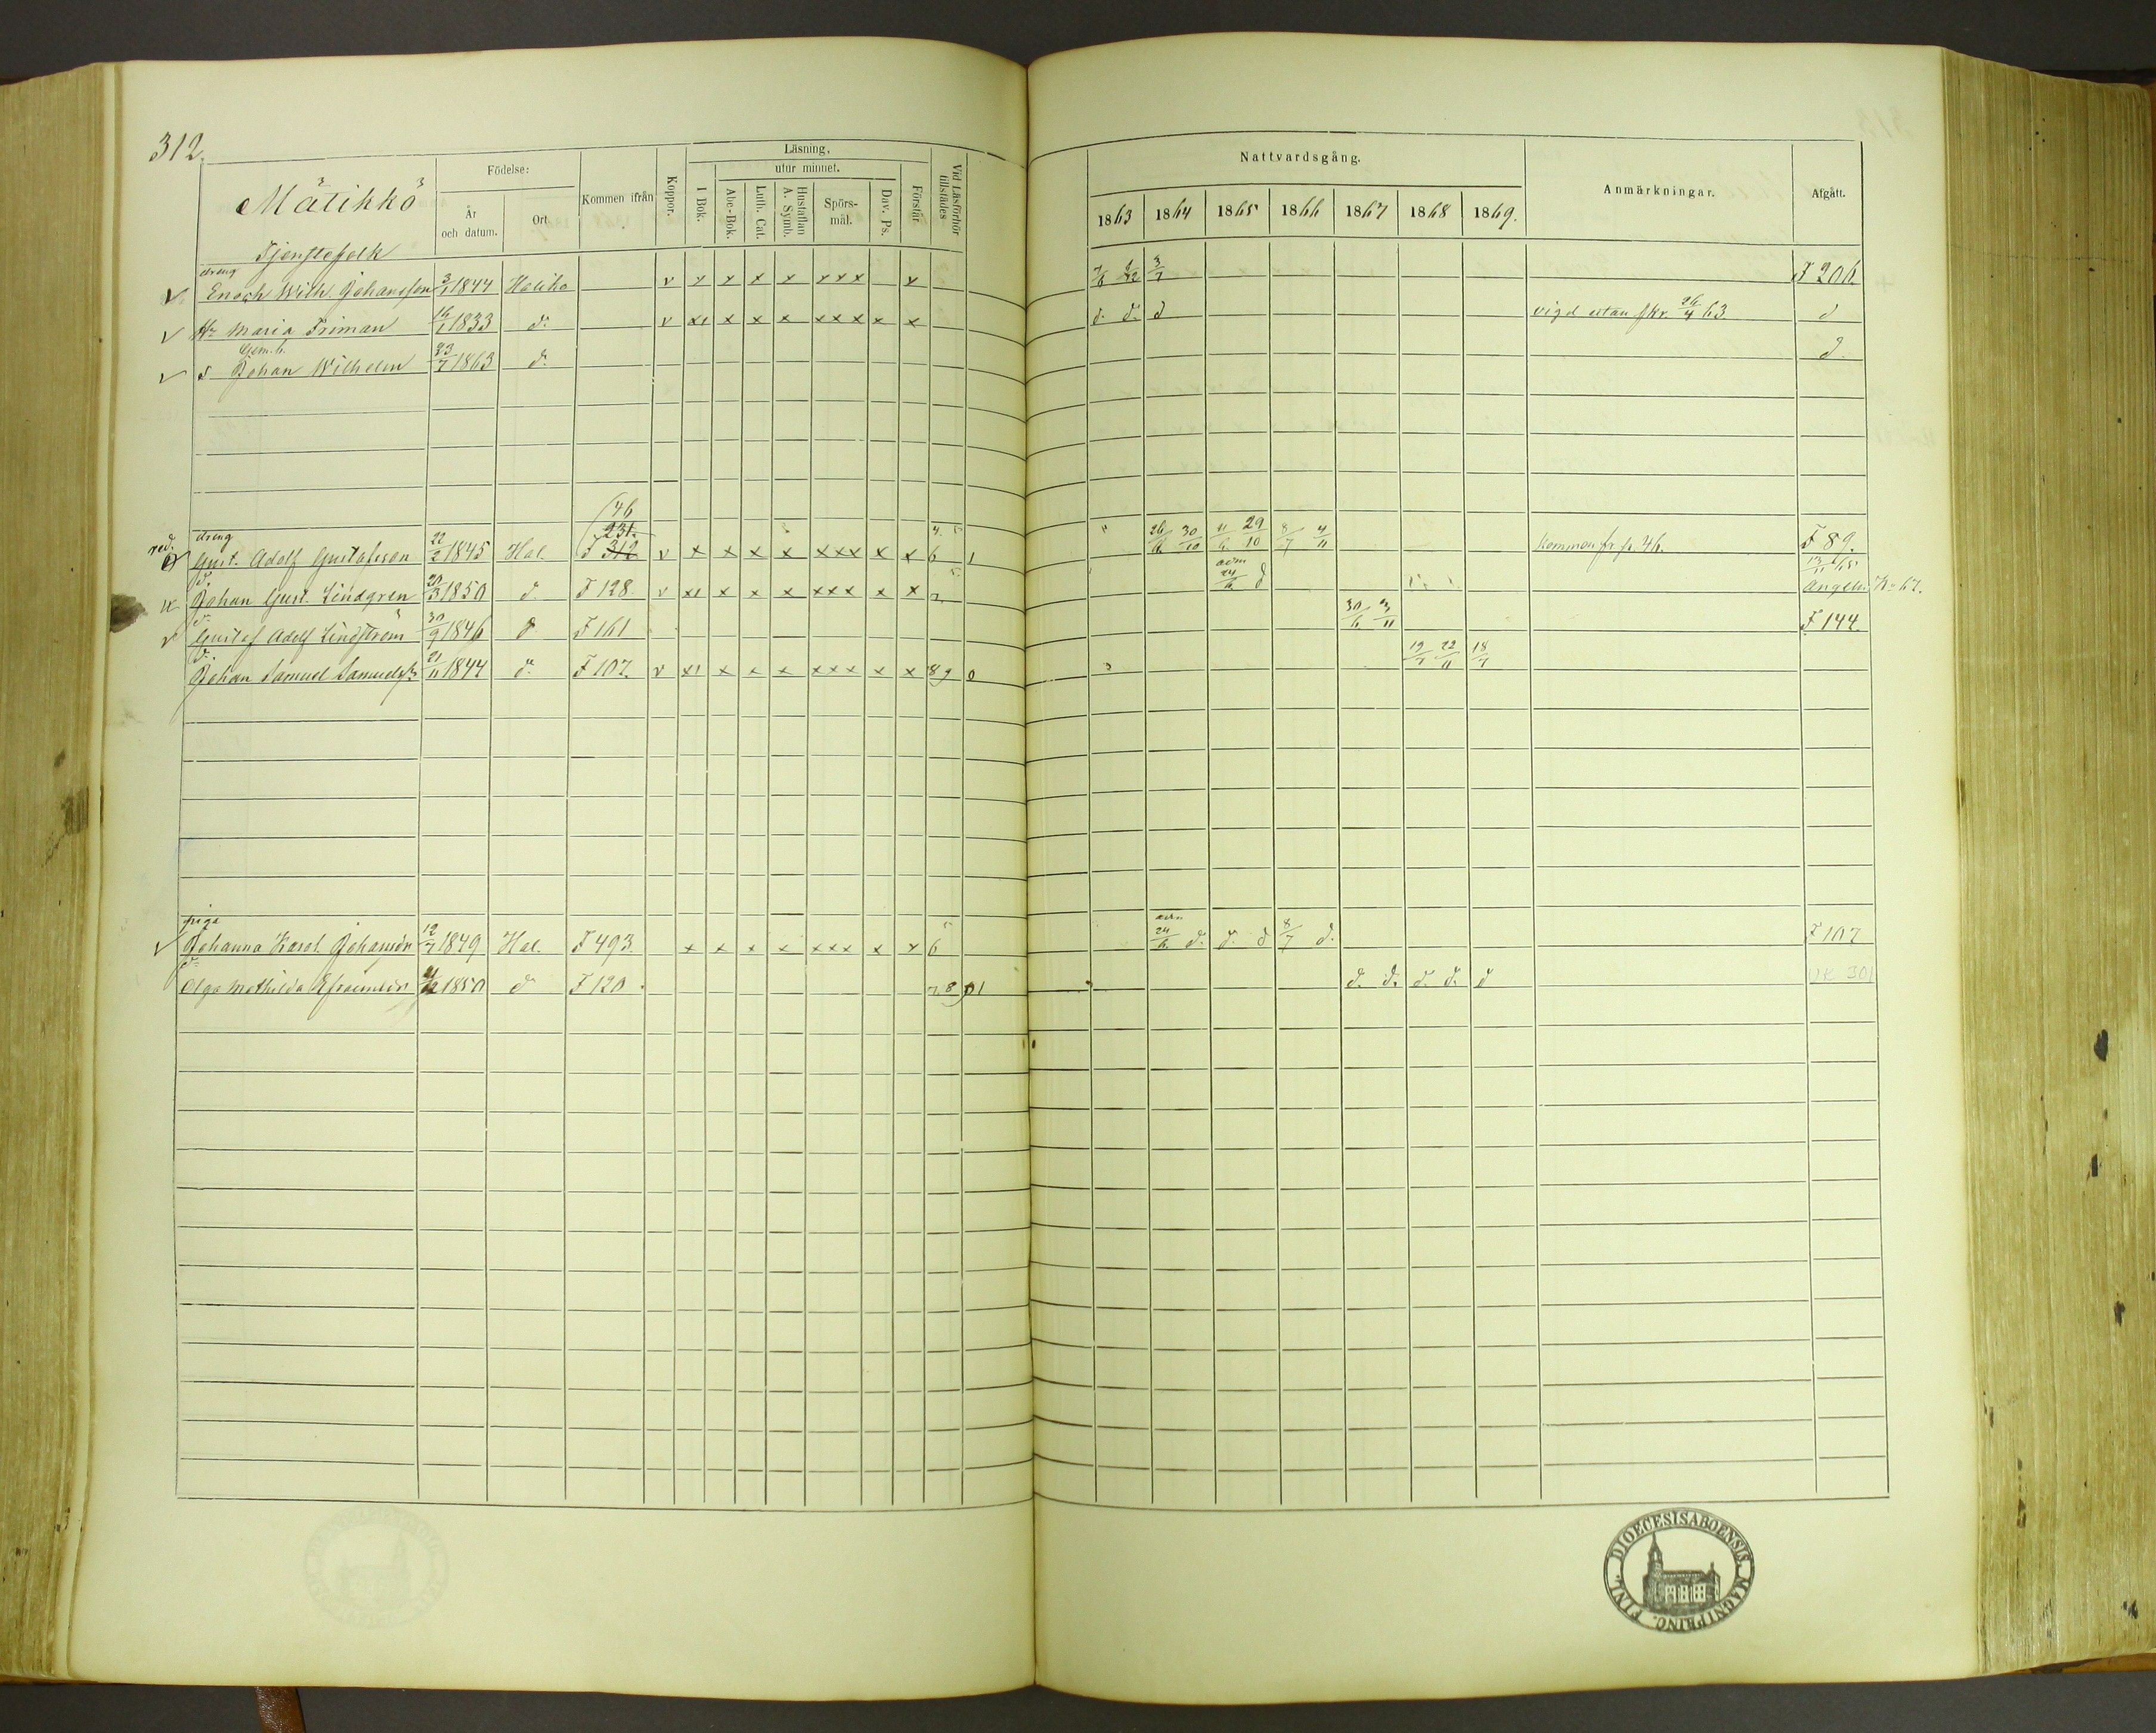 312.
Mätikkö
Födelse:
År och datum.
Ort
Kommen ifrån
Koppor.
Läsning,
I Bok.
utur minnet.
Abc-Bok.
Luth. Cat.
Hustaflan A. Symb.
Spörsmål.
Dav. Ps.
Förstår
Vid Läsförhör tillstädes
Nattvardsgång.
1863 1864 1865 1866 1867 1868 1869.
Anmärkningar.
Afgått.
Tjenstefolk
dreng
v Enoch Wilh. Johansson 3/1 1844 Haliko v x x x x xxx v 3/7 F 206.
v Hu Maria Friman 16/1 1833 d:o v xx x x x xxx x x d: d: d vigd utan skr. 26/4 63. d
v s Johan Wilhelm 23/7 1863 d:o d
46
231.
dreng
Gust. Adolf Gustafsson 22/2 1845 Hal. F 312 v x x x x xxx x x 6 1 " 26/6 30/10 29/10 8/7 4/11 Kommen fr p. 46. F 89.
adm
d:o
Johan Gust. Lindgren 20/3 1850 d F 128. v xx x x x xxx x x 24/6 d
d:o
v Gustaf Adolf Lindström 30/9 1846 d F 161 30/6 3/11 F 144
d:o
Johan Samuel Samuelss. 21/11 1844 d:o F 107. v xx x x x xxx x x 8 9 0 19/7 22/11 18/7
piga
adm
v Johanna Karol. Johansdr 12/7 1849 Hal. F 493. x x x x xxx x x 6 24/6 d. d. d 8/7 d. F 107
d:o
Olga Mathilda Efraimsdr 1850 d F 120 7 8 9 1 d. d. d. d. d UK 301
DIOECESIS ABOENSIS MAGNI PRINC. FINL.